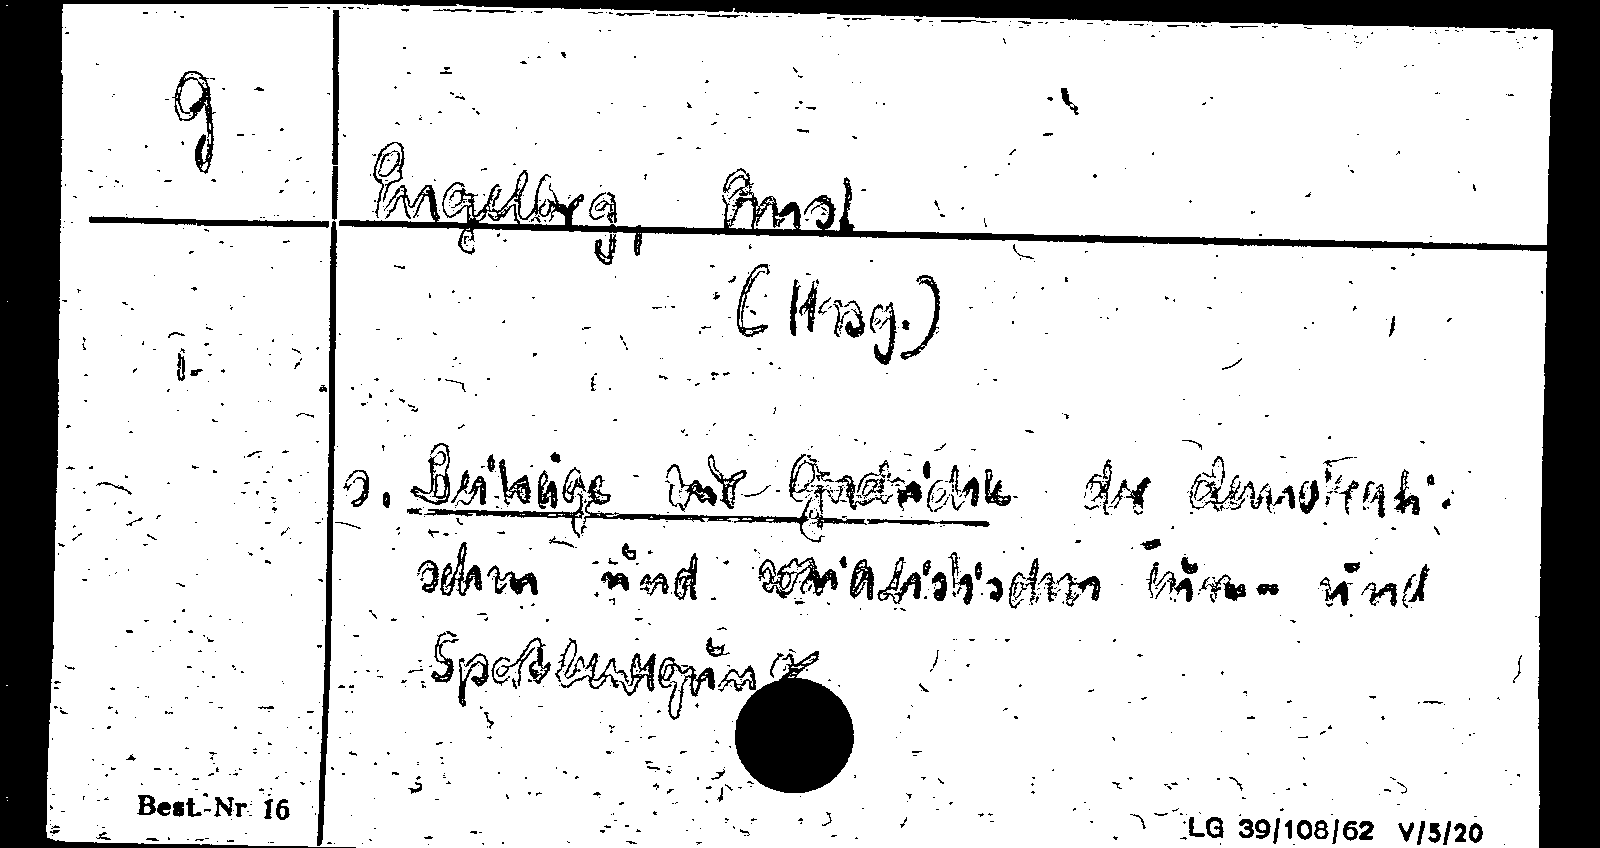 g
Engelberg, Ernst
(Hrsg.)
s. Beiträge zur Geschichte der demokrati-
schen und sozialistischen Turn- und
Sportbewegung
Best.-Nr 16
LG 39/108/62 V/5/20